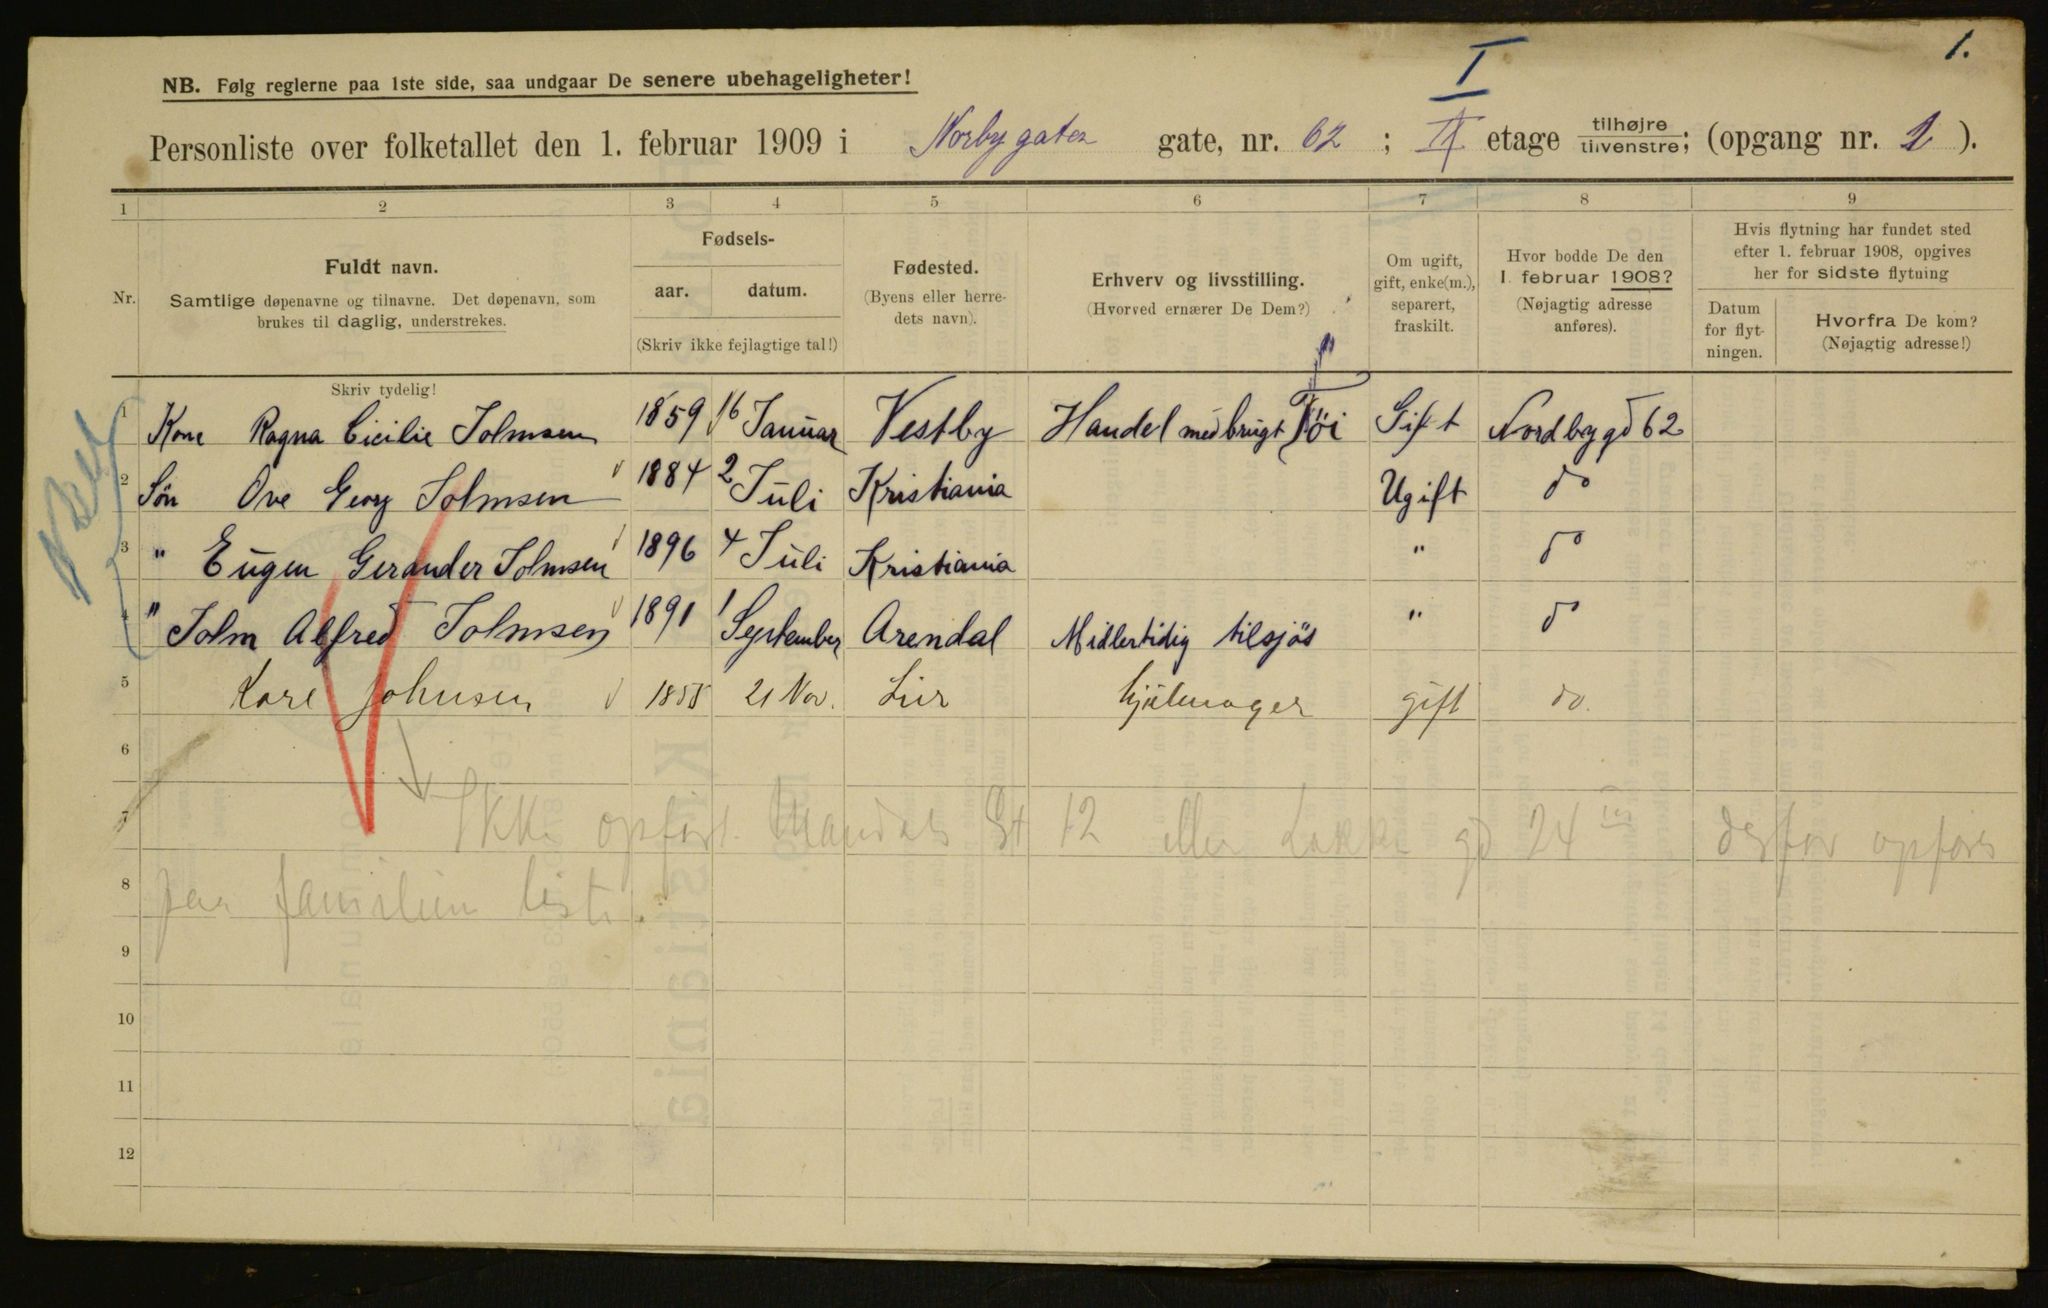 1.
I
NB. Følg reglerne paa 1ste side, saa undgaar De senere ubehageligheter!
Personliste over folketallet den 1. februar 1909 i Norbygaten gate, nr. 62 ; II etage tilhøjre tilvenstre; (opgang nr. 1 ).
1 2 3 4 5 6 7 8 9
Nr.
Fuldt navn.
Samtlige døpenavne og tilnavne. Det døpenavn, som
brukes til daglig, understrekes.
Fødsels-
aar. datum.
(Skriv ikke fejlagtige tal!)
Fødested.
(Byens eller herre-
dets navn).
Erhverv og livsstilling.
(Hvorved ernærer De Dem?)
Om ugift,
gift, enke(m.),
separert,
fraskilt.
Hvor bodde De den
1. februar 1908?
(Nøjagtig adresse
anføres).
Hvis flytning har fundet sted
efter 1. februar 1908, opgives
her for sidste flytning
Datum
for flyt-
ningen.
Hvorfra De kom?
(Nøjagtig adresse!)
Skriv tydelig!
1 Kone Ragna Cicilie Johnsen 1859 16 Januar Vestby Handel med brugt Töi Gift Nordbygd 62
2 Sön Ove Georg Johnsen 1884 2 Juli Kristiania Ugift do
3 " Eugen Gerander Johnsen 1896 4 Juli Kristiania " do
4 " John Alfred Johnsen 1891 1 September Arendal Midlertidig tilsjös " do
5 Karl Johnsen 1855 21 Nov. Lier hjulmager gift do.
6
7 Ikke opført Mandals Gt 12 eller Løkke gd 24 derfor opføres
8 paa familien liste.
9
10
11
12